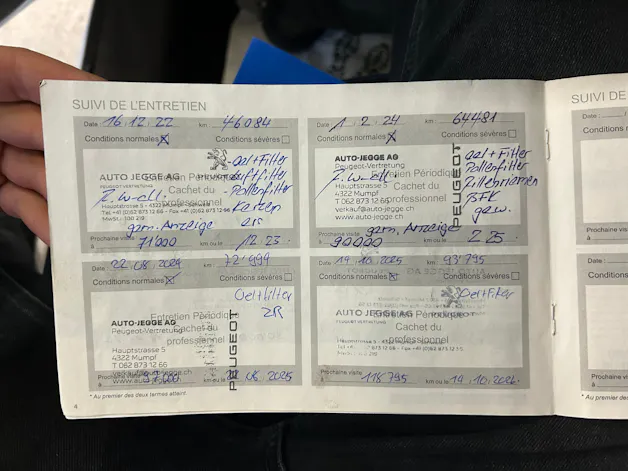 SUIVI DE L'ENTRETIEN
Date : 16.12.22 km : 46084
Conditions normales ☒ Conditions sévères ☐
AUTO JEGGE AG
PEUGEOT
PEUGEOT VERTRETUNG
Entretien Périodique
Cachet du
professionnel
Hauptstrasse 5 - 4322 Mumpf - Schweiz
Tel +41 (0)62 873 12 66 - Fax +41 (0)62 873 12
- oel+Filter
- Luftfilter
- Pollenfilter
- Kerzen
gem. Anzeige
Prochaine visite
à 71000 km ou le 12 23
Date : 1. 2. 24 km : 64481
Conditions normales ☒ Conditions sévères ☐
AUTO-JEGGE AG
Peugeot-Vertretung
Hauptstrasse 5
4322 Mumpf
T 062 873 12 66
verkauf@auto-jegge.ch
www.auto-jegge.ch
PEUGEOT
Entretien Périodique
Cachet du
professionnel
oel+Filter
Pollenfilter
gem. Anzeige
Prochaine visite
à 90000 km ou le 2 25
Date : 22.08.2024 km : 72'999
Conditions normales ☒ Conditions sévères ☐
Entretien Périodique
Cachet du
professionnel
AUTO-JEGGE AG
Peugeot-Vertretung
Hauptstrasse 5
4322 Mumpf
T 062 873 12 66
verkauf@auto-jegge.ch
www.auto-jegge.ch
PEUGEOT
Oelfilter
Prochaine visite
à 97'000 km ou le 22.08.2025
Date : 19.10.2025 km : 93'795
Conditions normales ☒ Conditions sévères ☐
Entretien Périodique
Cachet du
professionnel
AUTO JEGGE AG
PEUGEOT
PEUGEOT VERTRETUNG
Oelfilter
Prochaine visite
à 118'795 km ou le 19.10.2026
* Au premier des deux termes atteint
4
SUIVI DE
Date :
Conditions
Prochaine visite
à
Date :
Conditions
Prochaine visite
à
* Au premier